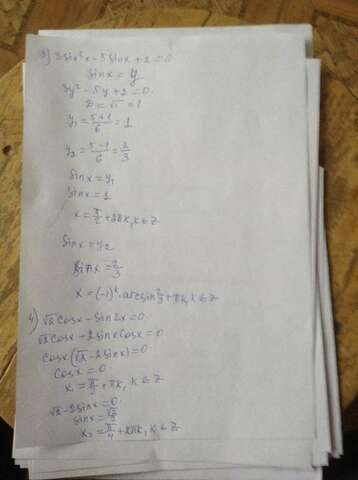 3) 3sin²x - 5sinx + 2 = 0
sinx = y
3y² - 5y + 2 = 0
D = √1 = 1
y₁ = (5+1)/6 = 1
y₂ = (5-1)/6 = 2/3
sinx = y₁
sinx = 1
x = π/2 + 2πk, k ∈ Z
sinx = y₂
sinx = 2/3
x = (-1)ᵏ · arcsin 2/3 + πk, k ∈ Z
4) √2 cosx - sin2x = 0
√2 cosx - 2sinx cosx = 0
cosx(√2 - 2sinx) = 0
cosx = 0
x₁ = π/2 + πk, k ∈ Z
√2 - 2sinx = 0
sinx = √2/2
x₂ = π/4 + 2πk, k ∈ Z